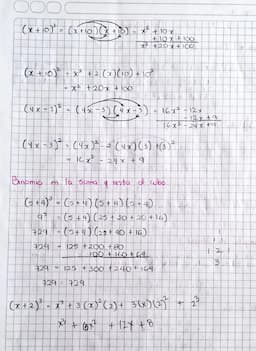 (x+10)² = (x+10)(x+10) = x² + 10x
+ 10x + 100
x² + 20x + 100
(x+10)² = x² + 2(x)(10) + 10²
= x² + 20x + 100
(4x-3)² = (4x-3)(4x-3) = 16x² - 12x
- 12x + 9
16x² - 24x + 9
(4x-3)² = (4x)² - 2(4x)(3) + (3)²
= 16x² - 24x + 9
Binomio la suma y resta al cubo
(5+4)³ = (5+4)(5+4)(5+4)
9³ = (5+4)(25+20+20+16)
729 = (5+4)(25+40+16)
729 = 125 + 200 + 80
100 + 160 + 64
729 = 125 + 300 + 240 + 64
729 = 729
(x+2)³ = x³ + 3(x)²(2) + 3(x)(2)² + 2³
x³ + 6x² + 12x + 8